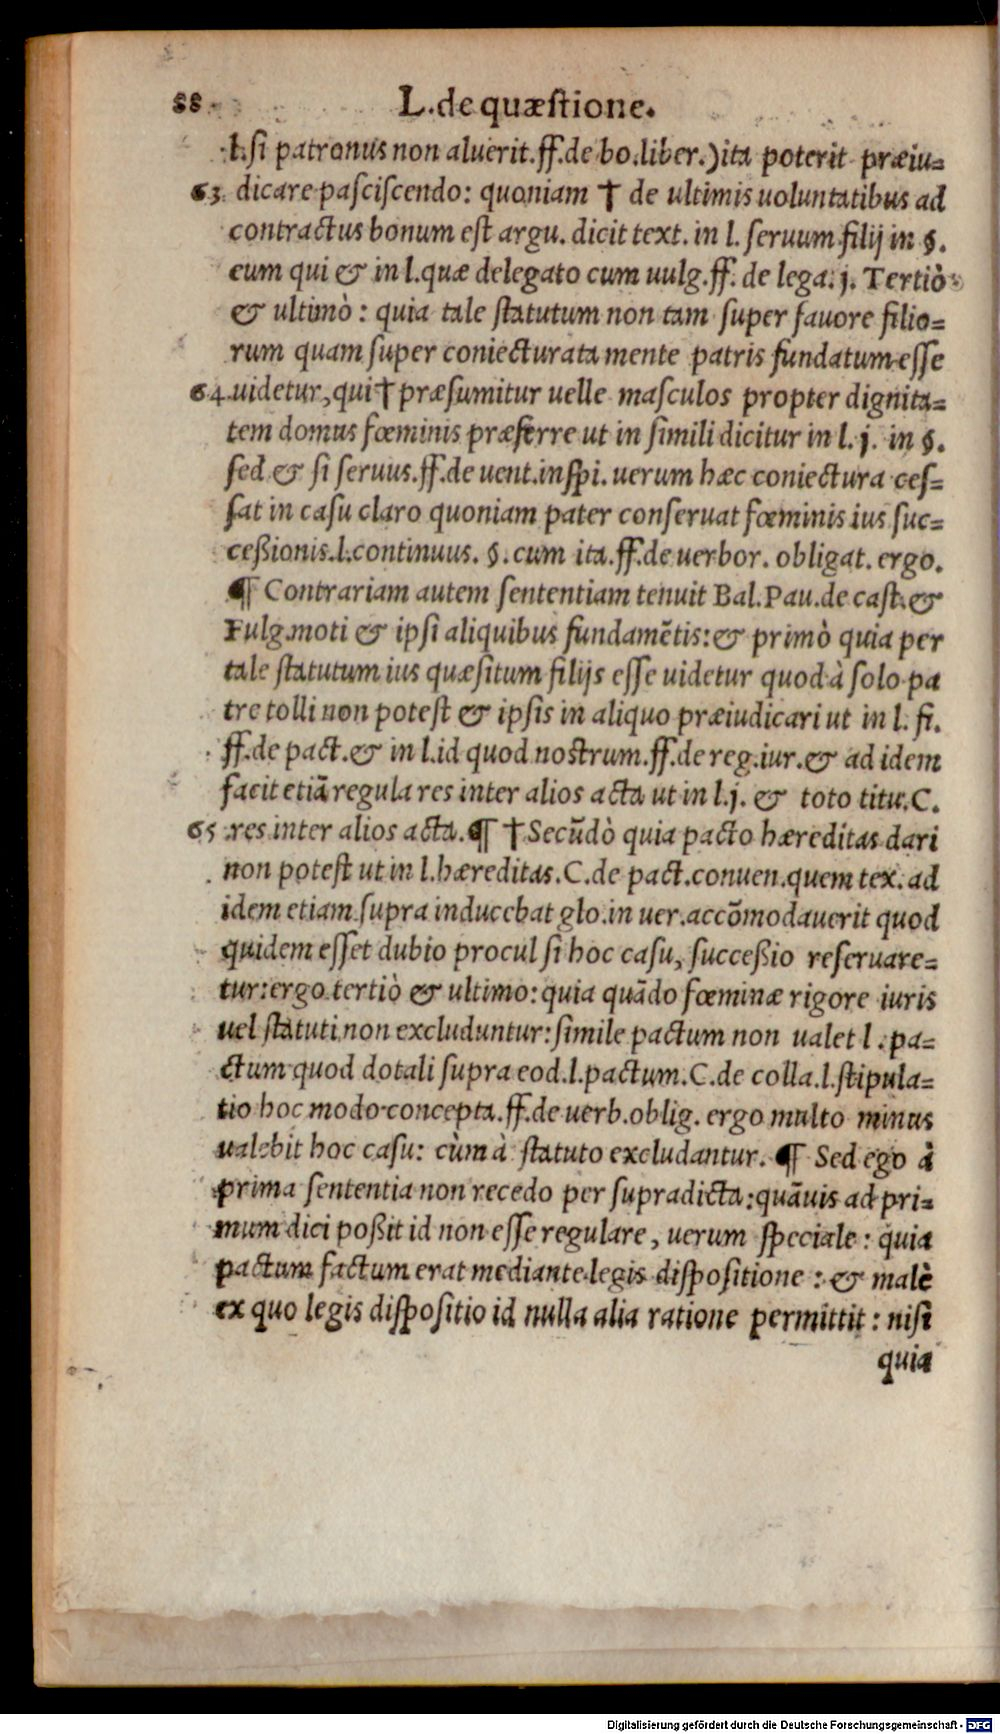 88 L. de quæstione.
l. si patronus non aluerit. ff. de bo. liber.) ita poterit præiu=
63 dicare pasciscendo: quoniam † de ultimis uoluntatibus ad
contractus bonum est argu. dicit text. in l. seruum filij in §.
eum qui & in l. quæ delegato cum uulg. ff. de lega. j. Tertiò
& ultimò: quia tale statutum non tam super fauore filio=
rum quam super coniecturata mente patris fundatum esse
64 uidetur, qui † præsumitur uelle masculos propter dignita=
tem domus fœminis præferre ut in simili dicitur in l. j. in §.
sed & si seruus. ff. de uent. inspi. uerum hæc coniectura ces=
sat in casu claro quoniam pater conseruat fœminis ius suc=
ceßionis. l. continuus. §. cum ita. ff. de uerbor. obligat. ergo.
¶ Contrariam autem sententiam tenuit Bal. Pau. de cast. &
Fulg. moti & ipsi aliquibus fundamētis: & primò quia per
tale statutum ius quæsitum filijs esse uidetur quod à solo pa
tre tolli non potest & ipsis in aliquo præiudicari ut in l. fi.
ff. de pact. & in l. id quod nostrum. ff. de reg. iur. & ad idem
facit etiā regula res inter alios acta ut in l. j. & toto titu. C.
65 res inter alios acta. ¶ † Secūdò quia pacto hæreditas dari
non potest ut in l. hæreditas. C. de pact. conuen. quem tex. ad
idem etiam supra inducebat glo. in uer. accōmodauerit quod
quidem esset dubio procul si hoc casu, succeßio reseruare=
tur: ergo tertiò & ultimo: quia quādo fœminæ rigore iuris
uel statuti non excluduntur: simile pactum non ualet l. pa=
ctum quod dotali supra eod. l. pactum. C. de colla. l. stipula=
tio hoc modo concepta. ff. de uerb. oblig. ergo multo minus
ualebit hoc casu: cùm à statuto excludantur. ¶ Sed ego à
prima sententia non recedo per supradicta: quāuis ad pri=
mum dici poßit id non esse regulare, uerum speciale: quia
pactum factum erat mediante legis dispositione: & malè
ex quo legis dispositio id nulla alia ratione permittit: nisi
quia
Digitalisierung gefördert durch die Deutsche Forschungsgemeinschaft - DFG